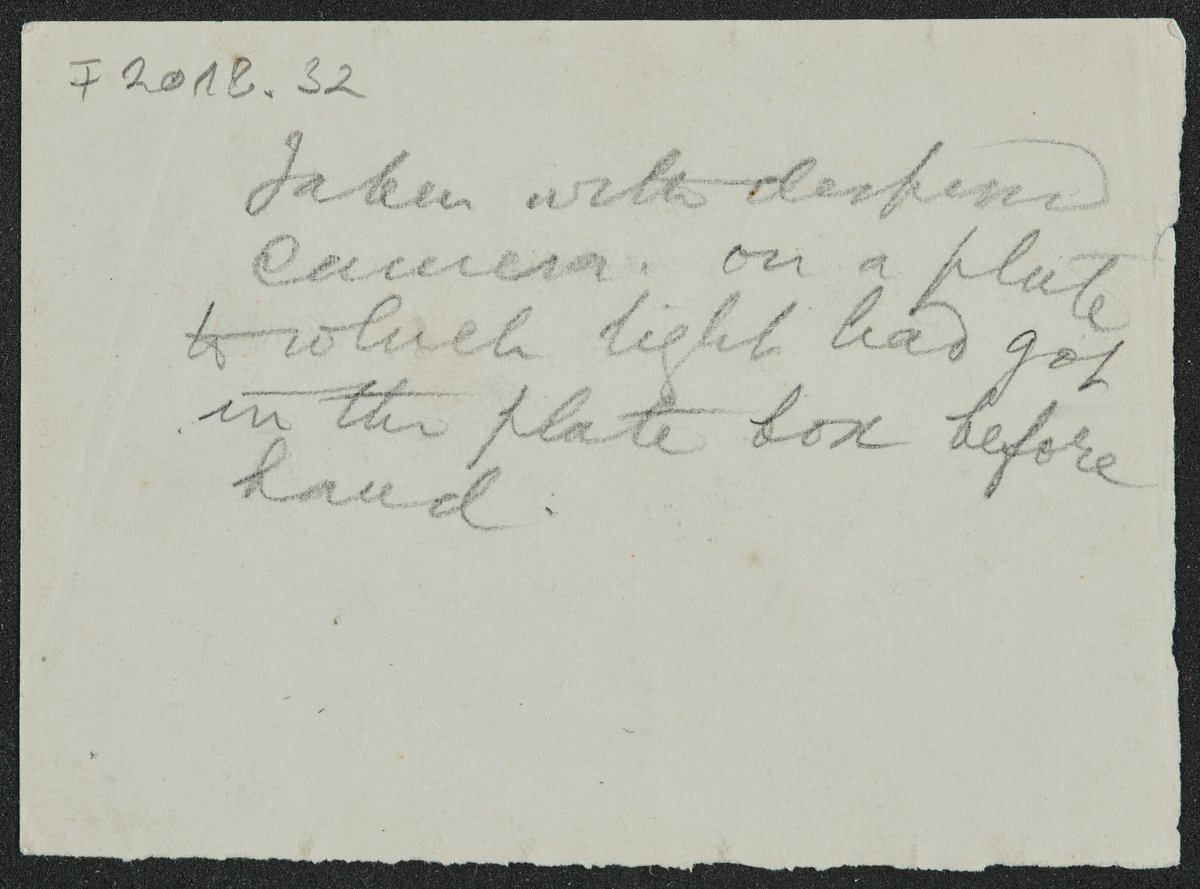 F 2018.32
Taken with
camera. on a plate
to which light had got
in the plate box before
hand.